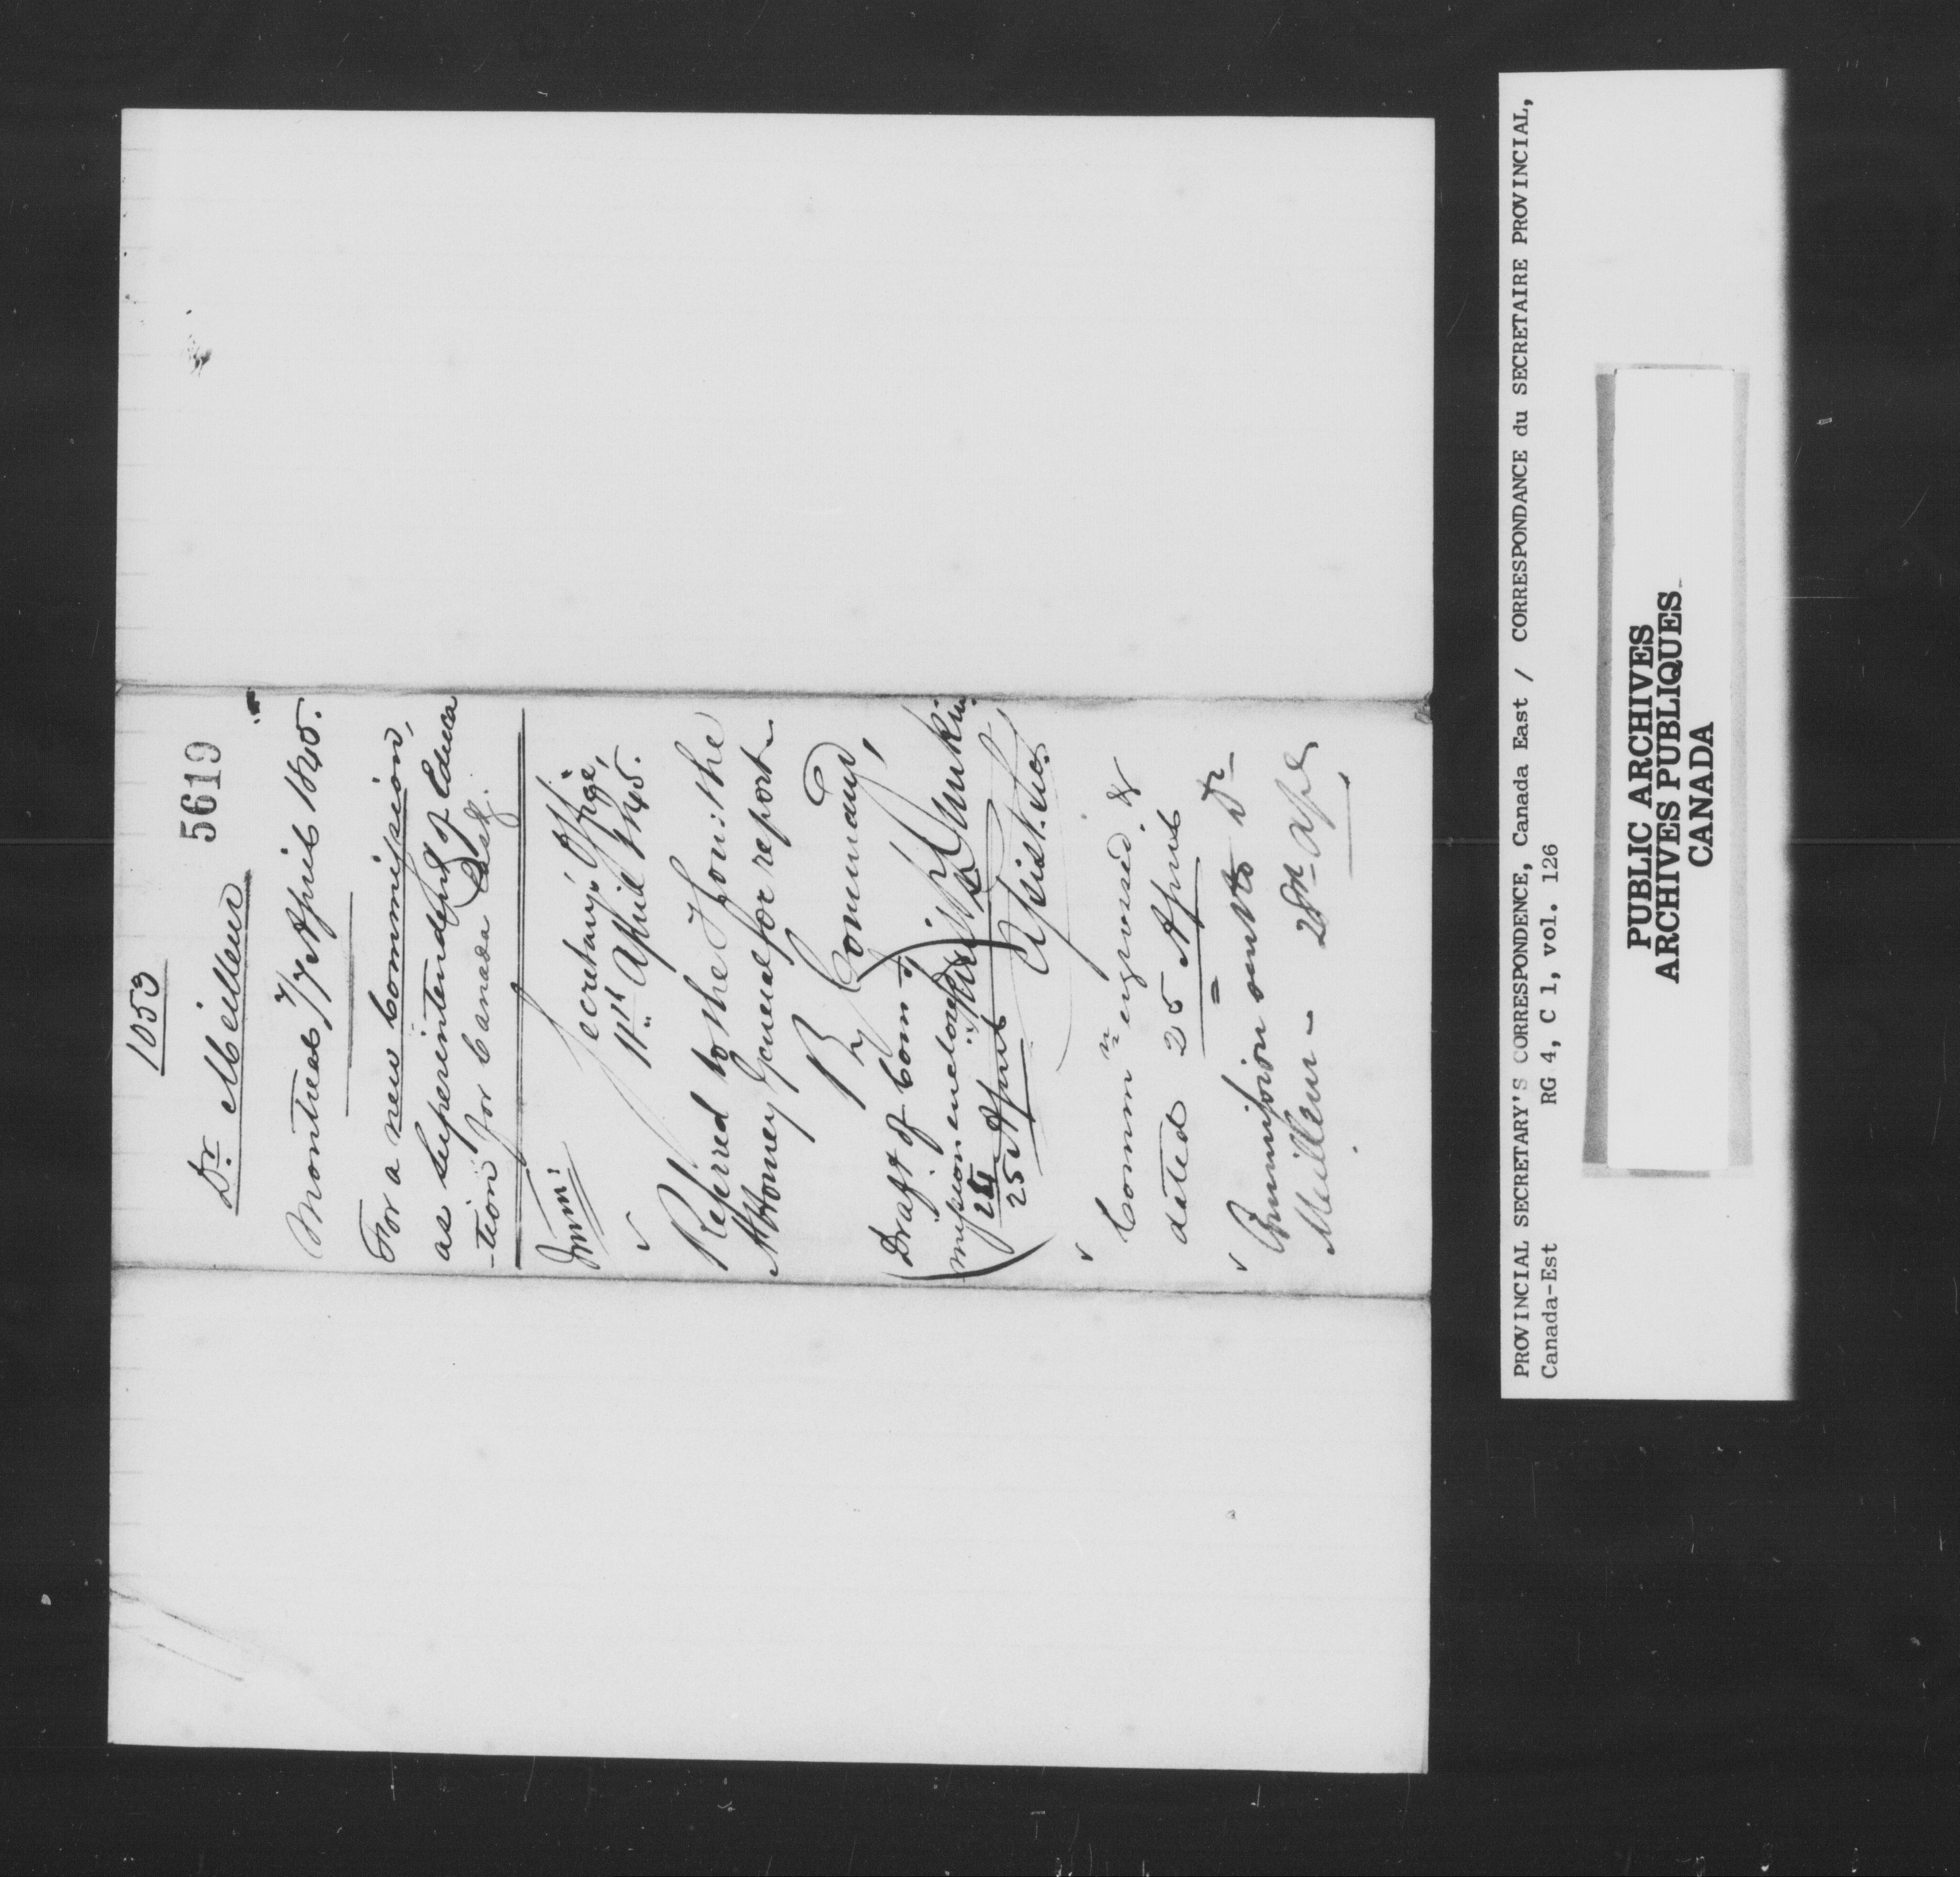 1053
5619
Dr. Meilleur
Montreal, 7 April 1845.
For a new Commission,
as Superintendent of Educa
-tion for Canada East.
Secretary's Office,
11th April 1845.
Referred to the Hon: the
Attorney General for report
By Command,
Draft of Com
mission enclosed
25 April
Asist. Sec.
Commn engrossed &
dated 25 April
Commission sent to Dr
Meilleur - 28th Apl
PROVINCIAL SECRETARY'S CORRESPONDENCE, Canada East / CORRESPONDANCE du SECRETAIRE PROVINCIAL,
Canada-Est RG 4, C 1, vol. 126
PUBLIC ARCHIVES
ARCHIVES PUBLIQUES
CANADA